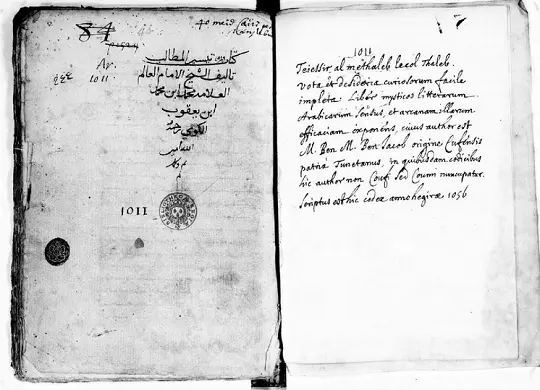 84
Ar.
1011
كتاب تيسير المطالب
تاليف الشيخ الامام العالم
العلامة محمد ابن محمد
ابن يعقوب
الكومي
1011
1011
Teiessir al methaleb le col Thaleb.
vota et desideria curiosorum facile
impleta. Liber mysticos litterarum
Arabicarum sensus, et arcanam illarum
efficaciam exponens, cuius author est
M. Ben M. Ben Jacob origine Cufensis
patria Tunetanus, in quibusdam codicibus
hic author non Coufi sed Coumi nuncupatur.
scriptus est hic codex anno hegirae 1056